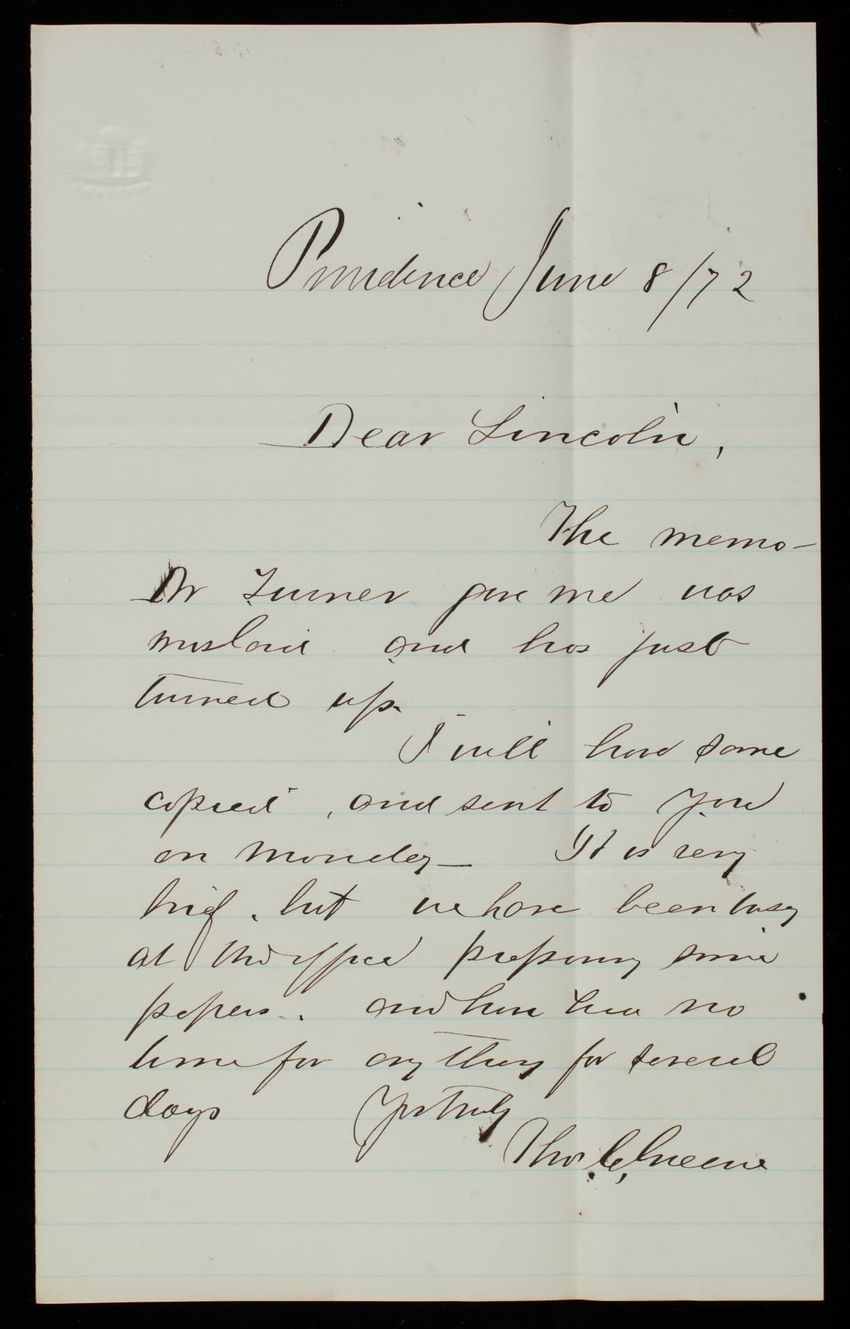 Providence June 8/72
Dear Lincoln,
The memo-
Dr Turner gave me was
mislaid and has just
turned up.
I will have same
copied, and sent to you
on Monday— It is very
brief, but we have been busy
at the office preparing some
papers. and have had no
time for any thing for several
days Yrs truly
Thos. C. Greene